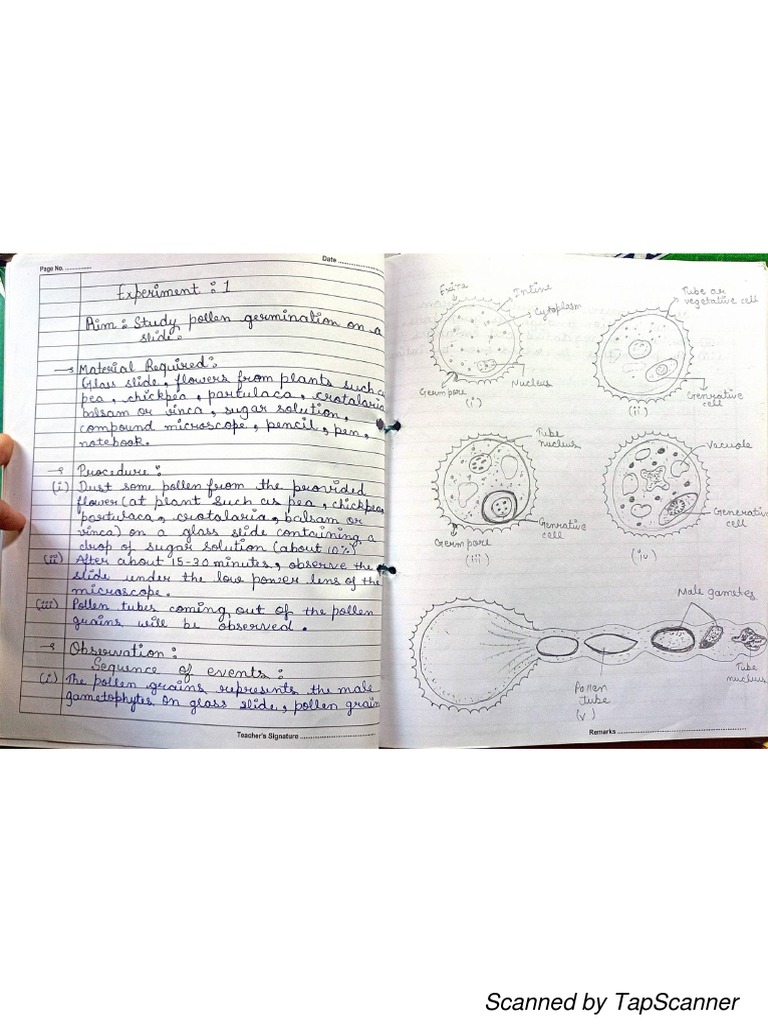 Page No. ............
Date ..................
Experiment : 1
Aim : Study pollen germination on a
slide.
→ Material Required :
Glass slide, flowers from plants such as
pea, chickpea, partulaca, crotalaria
balsam or vinca, sugar solution,
compound microscope, pencil, pen,
notebook.
→ Procedure :
(i) Dust some pollen from the provided
flower (at plant such as pea, chickpea
portulaca, crotalaria, balsam or
vinca) on a glass slide containing a
drop of sugar solution (about 10%)
(ii) After about 15-30 minutes, observe the
slide under the low power lens of the
microscope.
(iii) Pollen tubes coming out of the pollen
grains will be observed.
→ Observation :
Sequence of events :
(i) The pollen grains represents the male
gametophytes on glass slide, pollen grain
Teacher's Signature ........................
Exine
Intine
Cytoplasm
Germ pore
Nucleus
(i)
Tube or
vegetative cell
Genrative
cell
(ii)
Tube
nucleus
Genrative
cell
Germ pore
(iii)
Vacuole
Generative
cell
(iv)
Male gametes
Tube
nucleus
Pollen
tube
(v)
Remarks ........................
Scanned by TapScanner